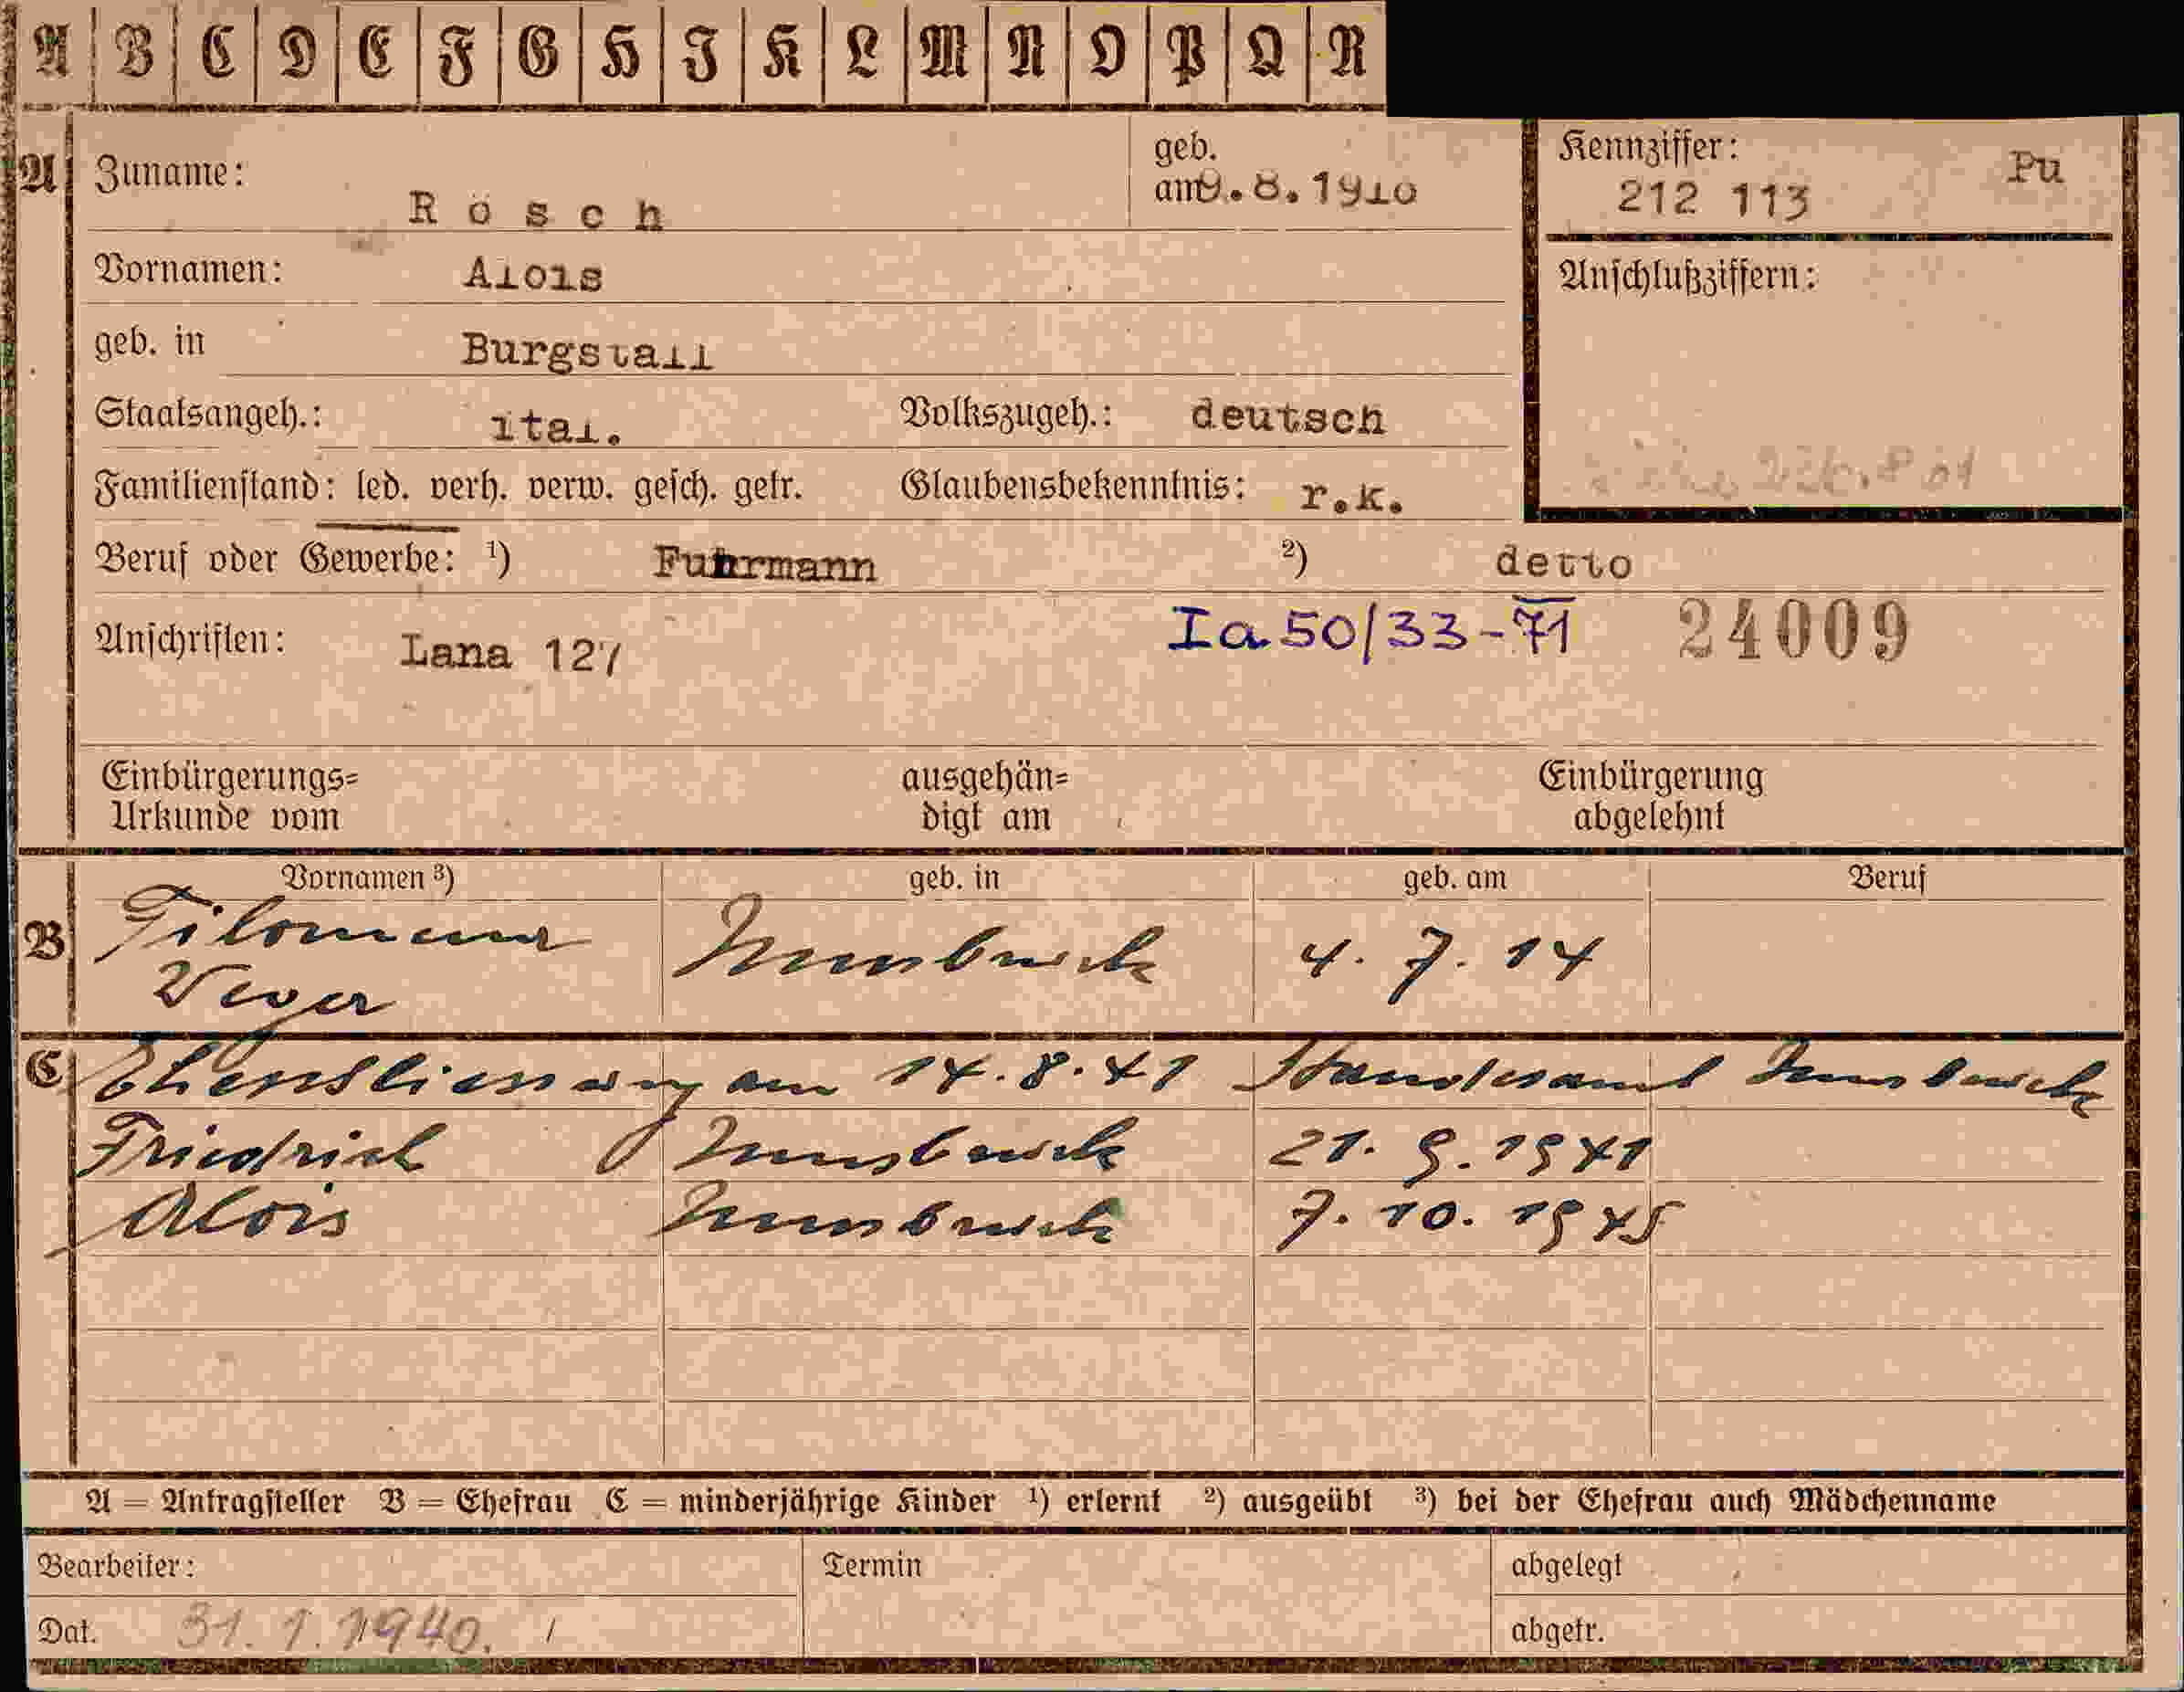 A B C D E F G H I K L M N O P Q R
A Zuname: Rösch geb. am 9.8.1910 Kennziffer: 212 113 Pu
Vornamen: Alois Anschlußziffern:
geb. in Burgstall
Staatsangeh.: ital. Volkszugeh.: deutsch
Familienstand: led. verh. verw. gesch. getr. Glaubensbekenntnis: r.k.
Beruf oder Gewerbe: 1) Fuhrmann 2) detto
Anschriften: Lana 127 Ia 50/33-71 24009
Einbürgerungs= ausgehän= Einbürgerung
Urkunde vom digt am abgelehnt
Vornamen 3) geb. in geb. am Beruf
B Filomena Innsbruck 4. 7. 14
Weger
C Eheschliessung am 14.8.41 Standesamt Innsbruck
Friedrich Innsbruck 21. 9. 1941
Alois Innsbruck 7. 10. 1945
A = Antragsteller B = Ehefrau C = minderjährige Kinder 1) erlernt 2) ausgeübt 3) bei der Ehefrau auch Mädchenname
Bearbeiter: Termin abgelegt
Dat. 31. 1. 1940. abgetr.